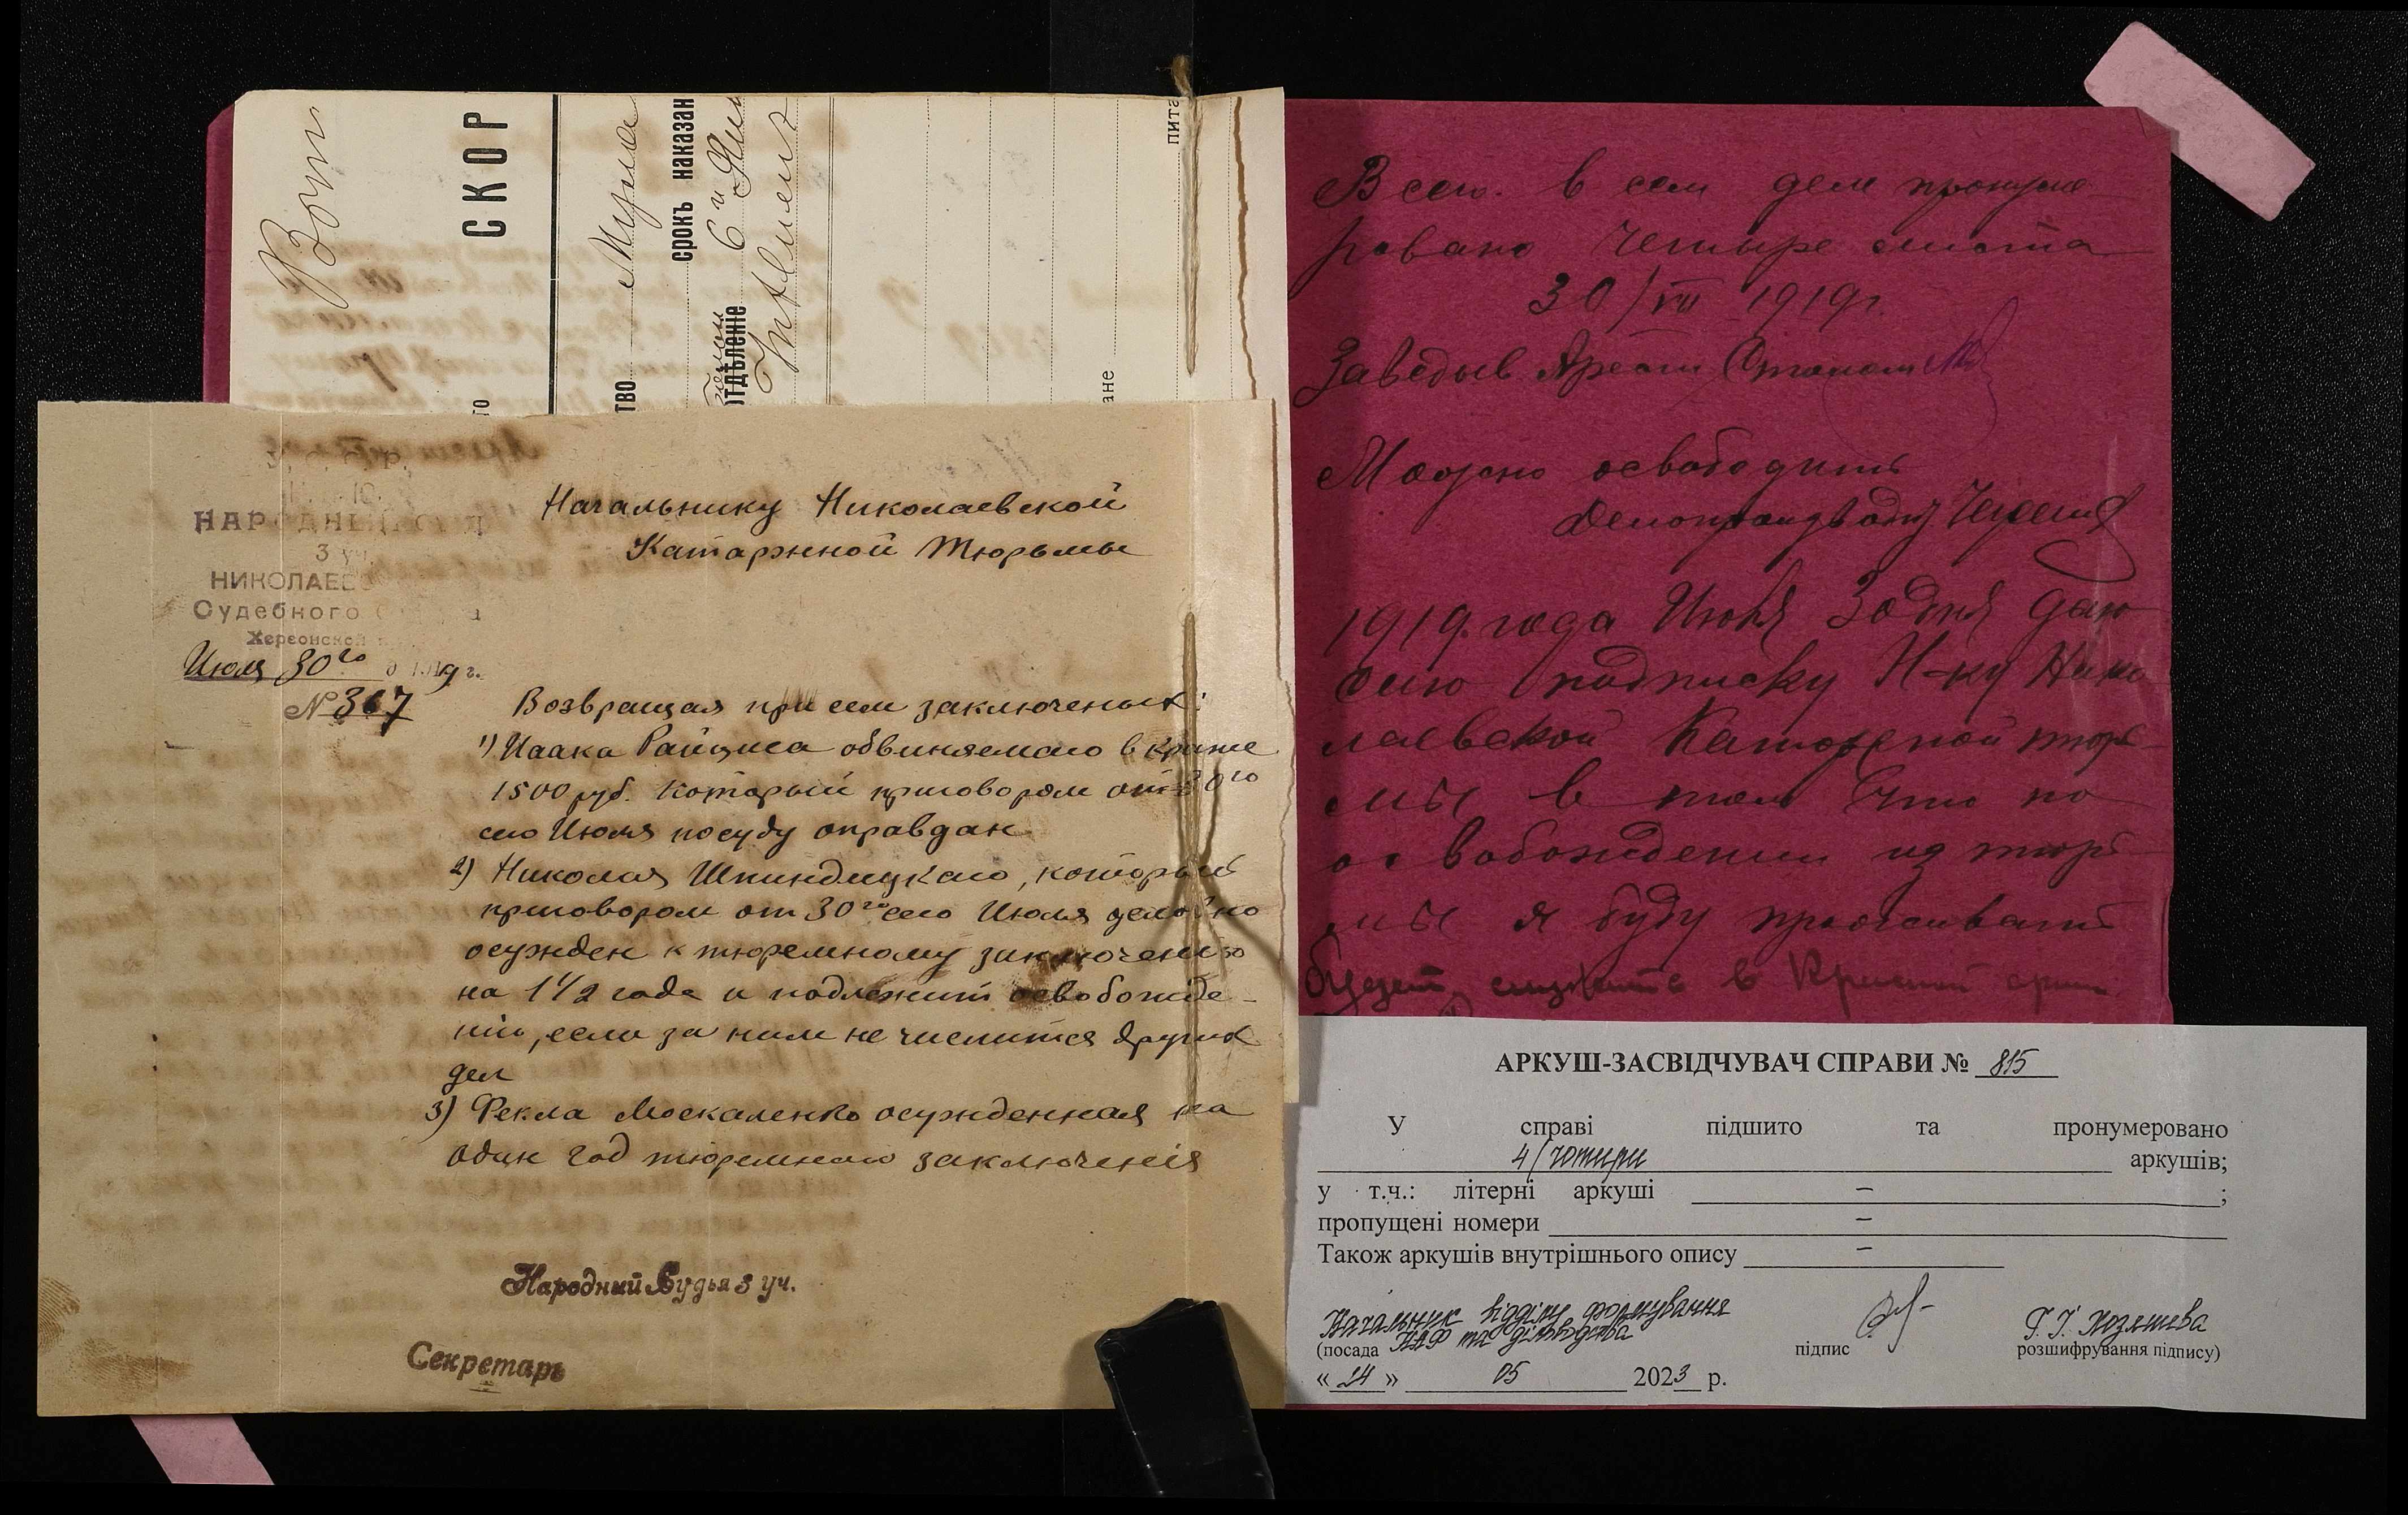 СКОР
срокъ наказан
тво
отдѣленіе
пита
ане
то
НАРОДНЫЙ СУД
3 уч.
НИКОЛАЕВ
Судебного
Херсонской
Июля 30го 1919 г.
№ 367
Начальнику Николаевской
Каторжной Тюрьмы
Возвращая при сем заключеных:
1) Исаака Райциса обвиняемаго в краже
1500 руб. который приговором от 30го
сего Июля посуду оправдан
2) Николая Шпиндлуцкаго, который
приговором от 30го сего Июля условно
осужден к тюремному заключению
на 1 1/2 года и подлежит освобожде-
нию, если за ним не числится других
дел
3) Фекла Москаленко осужденная на
один год тюремнаго заключенія
Народный Судья 3 уч.
Секретарь
Всего в сем деле пронуме
ровано Четыре листа
30/VII 1919 г.
Заведыв Арест Столом
Можно освободить
1919 года Июля 30 дня даю
сию подписку Н-ку Нико
лаевской Каторжной тюрь
мы в том что по
освобождении из тюрь
мы я буду проживать
будет служить в Красной арми
АРКУШ-ЗАСВІДЧУВАЧ СПРАВИ № 815
У справі підшито та пронумеровано
4/чотири аркушів;
у т.ч.: літерні аркуші – ;
пропущені номери –
Також аркушів внутрішнього опису –
Начальник відділу формування
НАФ та діловодства
(посада підпис розшифрування підпису)
« 24 » 05 2023 р.